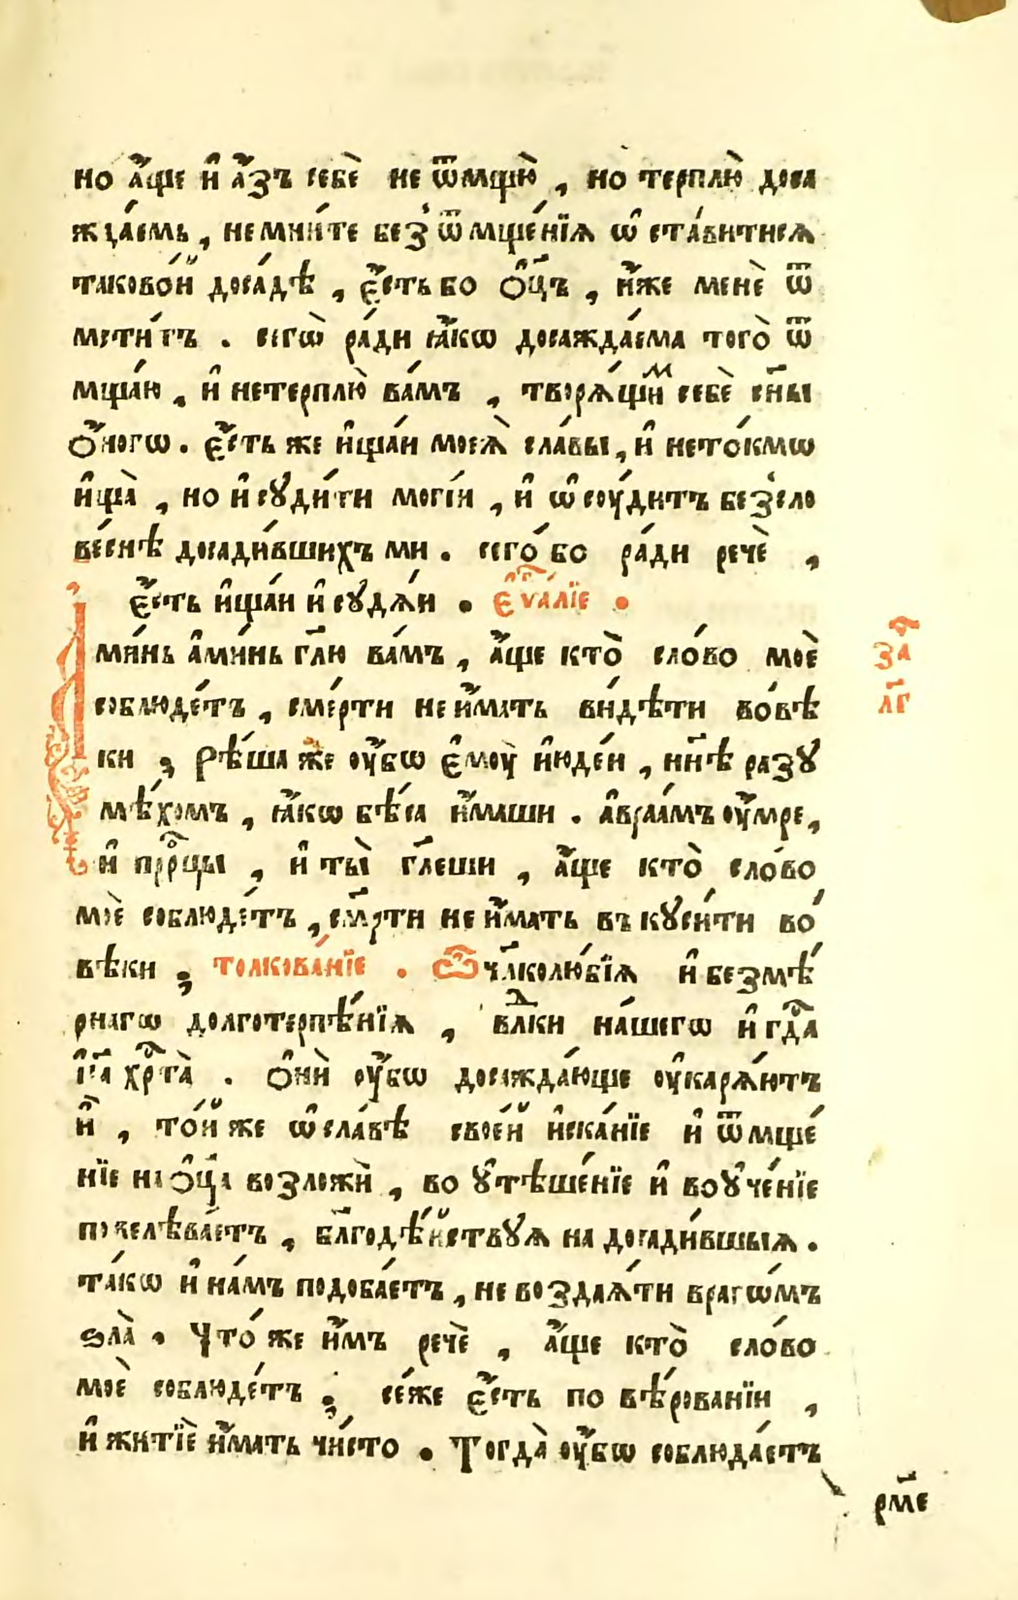 но а҆́ще и҆ а҆́зъ себѐ не ѿмщꙋ̀ , но терплю̀ доса
жда́емь , не мни́те без̾ ѿмще́нїѧ ѡ҆ста́витисѧ
таково́й доса́дѣ , є҆́сть бо ѻ҆ц҃ъ , и҆́же менѐ ѿ
мсти́тъ . сегѡ̀ ра́ди ꙗ҆́кѡ досажда́ема того̀ ѿ
мща́ю , и҆ нетерплю̀ ва́мъ , творѧ́щимъ себѐ сн҃ы
ѻ҆́ногѡ . є҆́сть же и҆ща́и моеѧ̀ сла́вы , и҆ нето́кмѡ
и҆щѧ̀ , но и҆ сꙋди́ти могі́и , и҆ ѡ҆сꙋ́дитъ без̾сло
ве́снѣ досади́вшихъ ми . сего́ бо ра́ди речѐ ,
є҆́сть и҆ща́и и҆ сꙋдѧ́и . є҆ѵⷢ҇а́лїе .
А҆ми́нь а҆ми́нь гл҃ю ва́мъ , а҆́ще кто̀ сло́во моѐ
соблюде́тъ , сме́рти не и҆́мать ви́дѣти во́вѣ
ки ; Рѣ́ша же ᲂу҆̀бѡ є҆мꙋ̀ і҆юде́и , нн҃ѣ разꙋ
мѣ́хомъ , ꙗ҆́кѡ бѣ́са и҆́маши . а҆враа́мъ ᲂу҆́мре ,
и҆ прⷪ҇рцы , и҆ ты̀ гл҃еши , а҆́ще кто̀ сло́во
моѐ соблюде́тъ , см҃рти не и҆́мать вкꙋси́ти во́
вѣки ; толкова́нїе . Ѿ чл҃колю́бїѧ и҆ безмѣ́
рнагѡ долготерпѣ́нїѧ , влⷣки на́шегѡ и҆ гдⷭ҇а
і҆с҃а хрⷭ҇та̀ . Ѻ҆нѝ ᲂу҆́бѡ досажда́юще ᲂу҆карѧ́ютъ
и҆̀ , то́й же ѡ҆ сла́вѣ свое́й и҆ска́нїе и҆ ѿмще́
нїе на ѻ҆ц҃а̀ возложѝ , во ᲂу҆тѣше́нїе и҆ воꙋ҆че́нїе
повелѣва́етъ , бл҃годѣ́йствꙋѧ на досади́вшыѧ .
та́кѡ и҆ на́мъ подоба́етъ , не воздаѧ́ти врагѡ́мъ
ѕла̀ . Что́ же и҆̀мъ речѐ , а҆́ще кто̀ сло́во
моѐ соблюде́тъ ; се́же є҆́сть по вѣ́рованїи ,
и҆ житїѐ и҆́мать чи́сто . Тогда̀ ᲂу҆́бѡ соблюда́етъ
за҄
л҃г
рм҃е